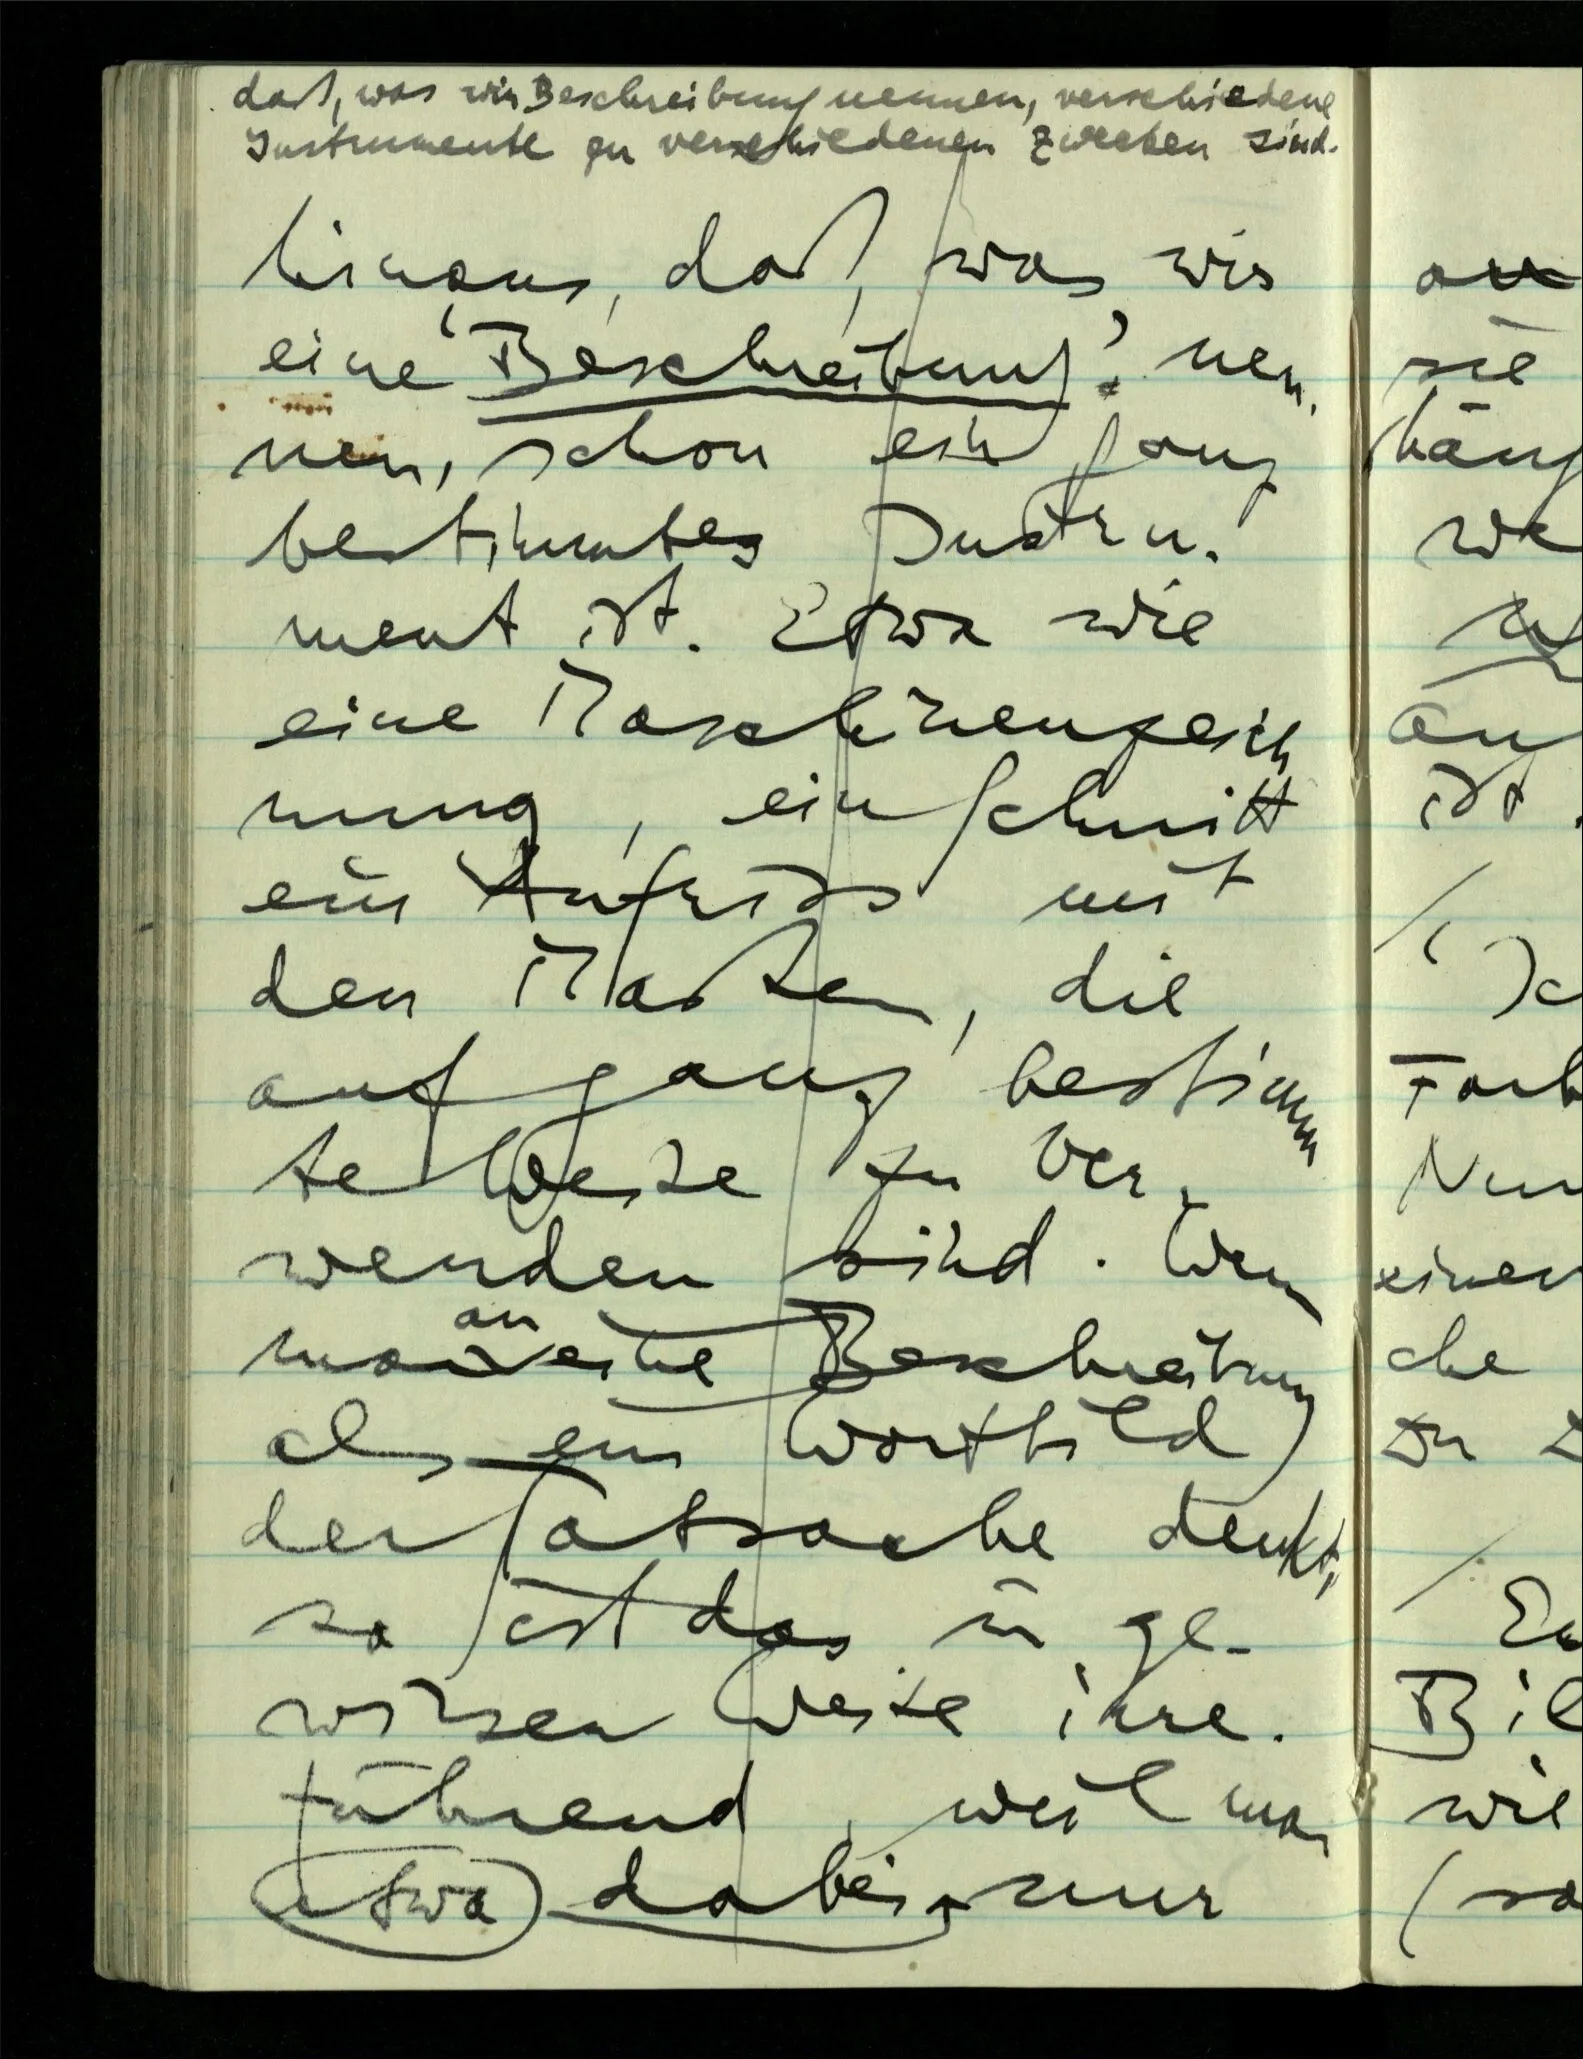 daß, was wir Beschreibung nennen, verschiedene
Instrumente zu verschiedenen Zwecken sind.
hinaus, daß, was wir
eine ‘Beschreibung’ nen-
nen, schon ein ganz
bestimmtes Instru-
ment ist. Etwa wie
eine Maschinenzeich
nung, ein Schnitt
ein Aufriss mit
den Maßen, die
auf ganz bestimm
te Weise zu ver-
wenden sind. Wenn
man an eine Beschreibung
als ein Wortbild
der Tatsache denkt,
so ist das in ge-
wissen Weise irre-
führend, weil man
etwa dabei nur
sie
ist.
Nun
einer
che
zu
wie
(so